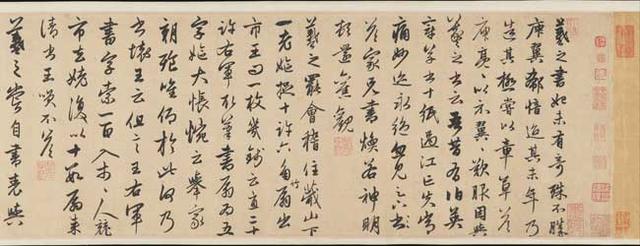 羲之書初未有奇殊不勝
庾翼郗愔迨其末年乃
造其極嘗以章草答
庾亮亮以示翼翼歎服因與
羲之書云吾昔有伯英
章草書十紙過江亡失常
痛妙迹永絕忽見足下書
答家兄書煥若神明
頓還舊觀
羲之罷會稽住蕺山下
一老嫗捉十許六角竹扇出
市王問一枚幾錢云直二十
許右軍取筆書扇扇為五
字嫗大悵惋云舉家
朝飧唯仰於此何乃
書壞王云但言王右軍
書字索一百入市市人競
市去姥復以十數扇來
請書王笑不答
羲之嘗自書表與